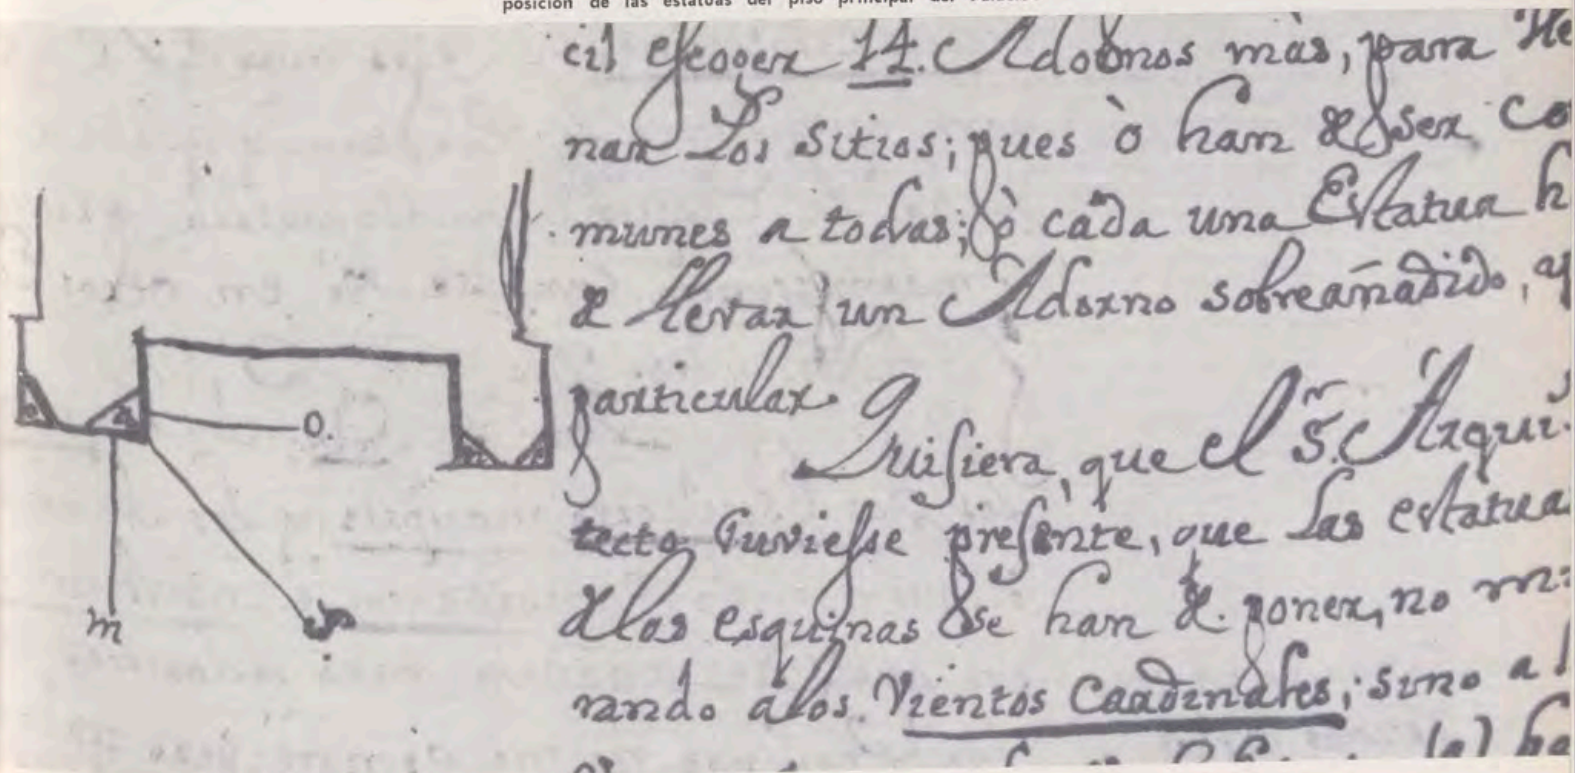 posición de las estatuas del piso principal del
cil escoger 14. Adornos màs, para lle
nar Los sitios; pues ò han de ser co
munes a todas; ò cada una Estatua h
de llevar un Adorno sobreañadido, y
particular.
Quisiera, que el Sr. Arqui
tecto tuviesse presente, que las estatua
de las esquinas se han de poner, no mi
rando a los Vientos Cardinales; sino a l
O.
m
S